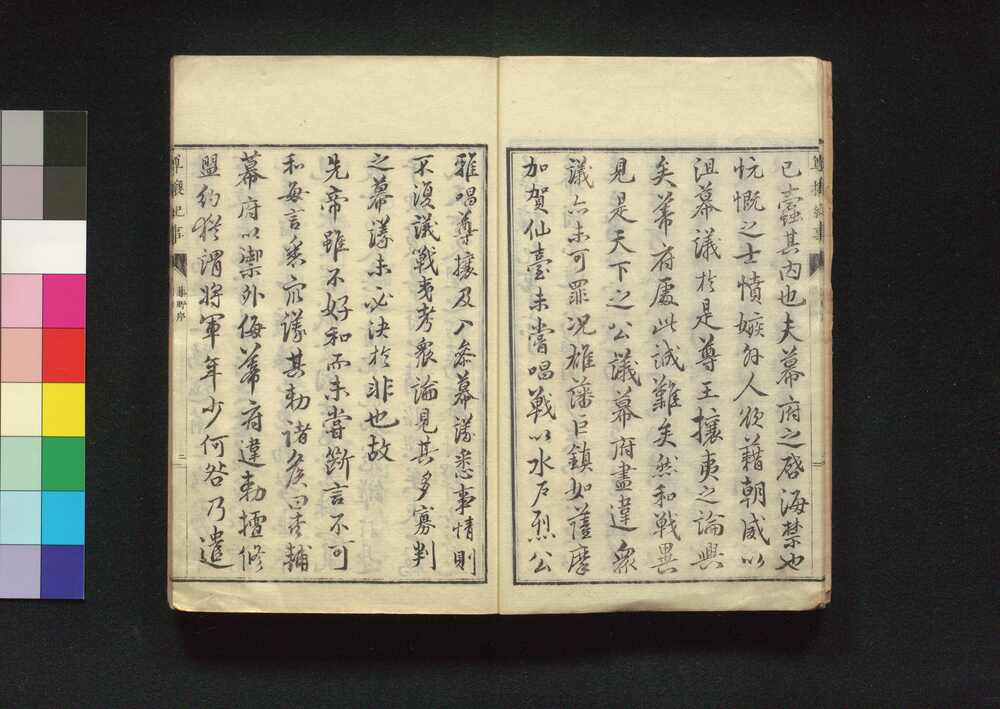 已蠧其内也夫幕府之啓海禁也
忼慨之士憤嫉於人欲藉朝威以
沮幕議於是尊王攘夷之論興
矣幕府處此誠難矣然和戰異
見是天下之公議幕府盡違衆
議亦未可罪况雄藩巨鎮如薩摩
加賀仙臺未嘗唱戰以水戸烈公
雅唱尊攘及入參幕議悉事情則
不復議戰夷考衆論見其多寡判
之幕議未必決於非也故
先帝雖不好和而未嘗斷言不可
和每言悉衆議其勅諸侯曰夾輔
幕府以禦外侮幕府違勅擅修
盟約猶謂將軍年少何咎乃遣
尊攘紀事
藤野序
二